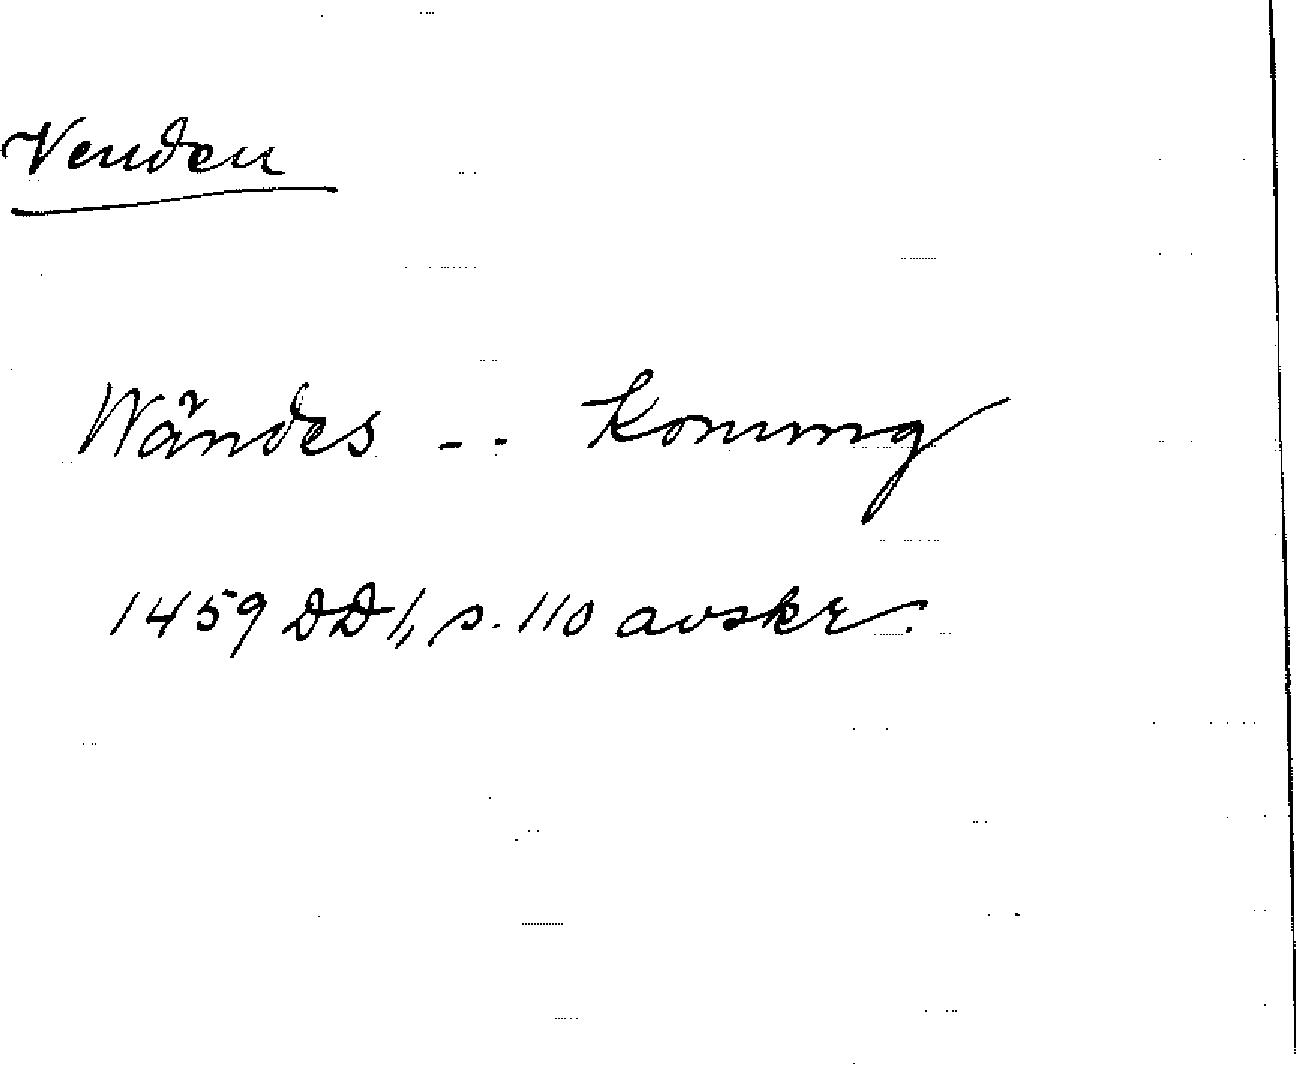 Venden
Wändes - - Konung
1459 DD 1, s. 110 avskr.